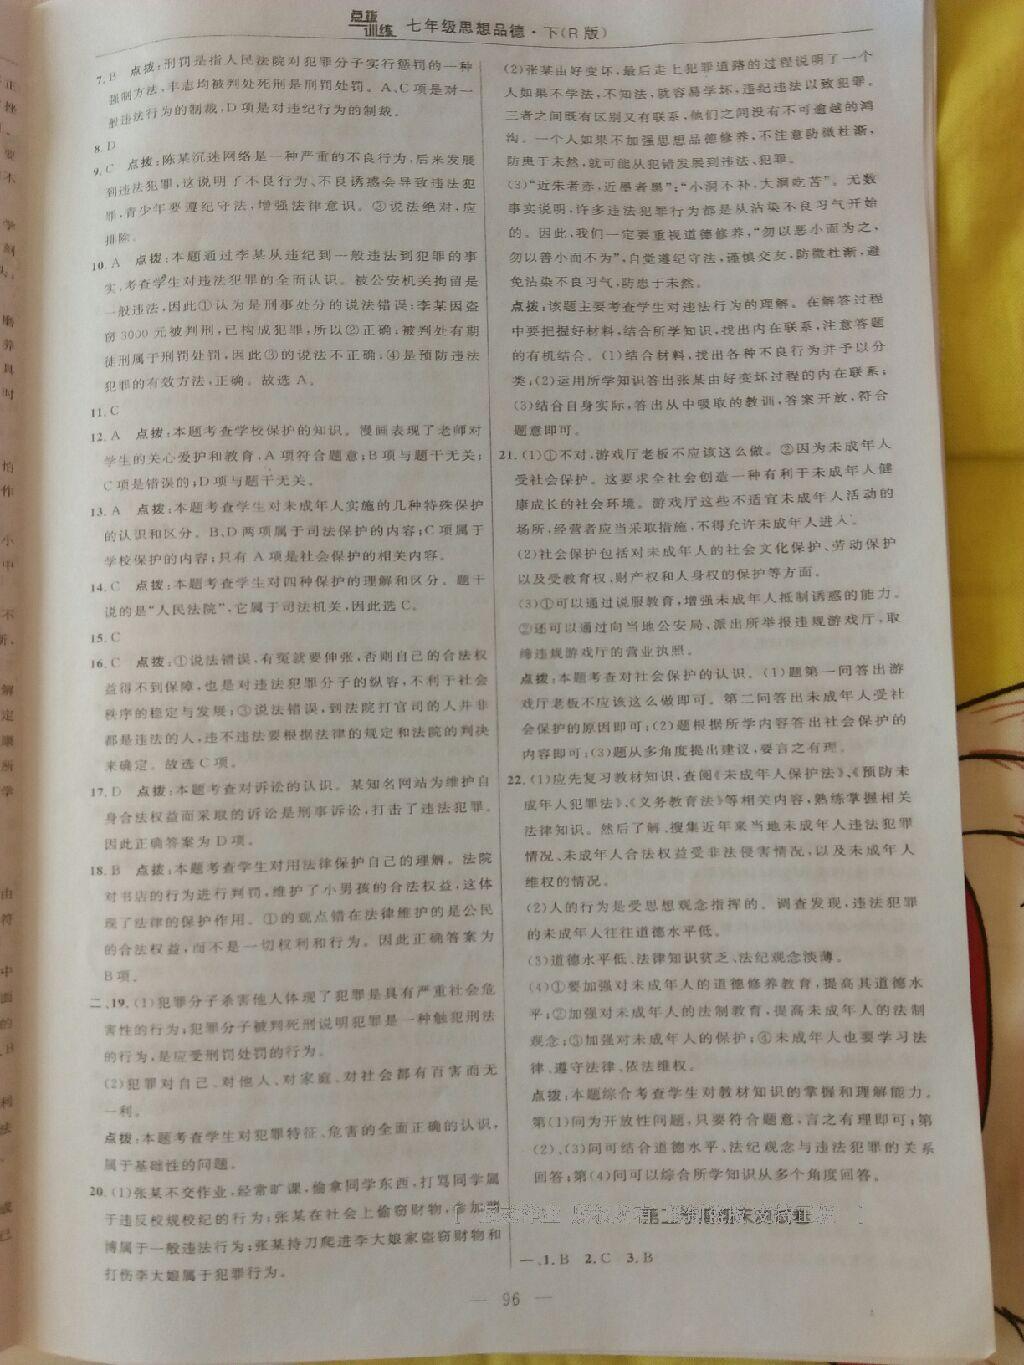 点拨
训练 七年级思想品德·下(R版)
7. B 点拨:刑罚是指人民法院对犯罪分子实行惩罚的一种
强制方法,丰志均被判处死刑是刑罚处罚。A、C项是对一
般违法行为的制裁,D项是对违纪行为的制裁。
8. D
9. C 点拨:陈某沉迷网络是一种严重的不良行为,后来发展
到违法犯罪,这说明了不良行为、不良诱惑会导致违法犯
罪,青少年要遵纪守法,增强法律意识。③说法绝对,应
排除。
10. A 点拨:本题通过李某从违纪到一般违法到犯罪的事
实,考查学生对违法犯罪的全面认识。被公安机关拘留是
一般违法,因此①认为是刑事处分的说法错误;李某因盗
窃3000元被判刑,已构成犯罪,所以②正确;被判处有期
徒刑属于刑罚处罚,因此③的说法不正确;④是预防违法
犯罪的有效方法,正确。故选A。
11. C
12. A 点拨:本题考查学校保护的知识。漫画表现了老师对
学生的关心爱护和教育,A项符合题意;B项与题干无关;
C项是错误的;D项与题干无关。
13. A 点拨:本题考查学生对未成年人实施的几种特殊保护
的认识和区分。B、D两项属于司法保护的内容;C项属于
学校保护的内容;只有A项是社会保护的相关内容。
14. C 点拨:本题考查学生对四种保护的理解和区分。题干
说的是“人民法院”,它属于司法机关,因此选C。
15. C
16. C 点拨:①说法错误,有冤就要伸张,否则自己的合法权
益得不到保障,也是对违法犯罪分子的纵容,不利于社会
秩序的稳定与发展;③说法错误,到法院打官司的人并非
都是违法的人,违不违法要根据法律的规定和法院的判决
来确定。故选C项。
17. D 点拨:本题考查对诉讼的认识。某知名网站为维护自
身合法权益而采取的诉讼是刑事诉讼,打击了违法犯罪。
因此正确答案为D项。
18. B 点拨:本题考查学生对用法律保护自己的理解。法院
对书店的行为进行判罚,维护了小男孩的合法权益,这体
现了法律的保护作用。①的观点错在法律维护的是公民
的合法权益,而不是一切权利和行为。因此正确答案为
B项。
二、19. (1)犯罪分子杀害他人体现了犯罪是具有严重社会危
害性的行为;犯罪分子被判死刑说明犯罪是一种触犯刑法
的行为,是应受刑罚处罚的行为。
(2)犯罪对自己、对他人、对家庭、对社会都有百害而无
一利。
点拨:本题考查学生对犯罪特征、危害的全面正确的认识,
属于基础性的问题。
20. (1)张某不交作业,经常旷课,偷拿同学东西,打骂同学属
于违反校规校纪的行为;张某在社会上偷窃财物,参加赌
博属于一般违法行为;张某持刀爬进李大娘家盗窃财物和
打伤李大娘属于犯罪行为。
(2)张某由好变坏,最后走上犯罪道路的过程说明了一个
人如果不学法,不知法,就容易学坏,违纪违法以致犯罪。
三者之间既有区别又有联系,他们之间没有不可逾越的鸿
沟。一个人如果不加强思想品德修养,不注意防微杜渐,
防患于未然,就可能从犯错发展到违法、犯罪。
(3)“近朱者赤,近墨者黑”;“小洞不补,大洞吃苦”。无数
事实说明,许多违法犯罪行为都是从沾染不良习气开始
的。因此,我们一定要重视道德修养,“勿以恶小而为之,
勿以善小而不为”,自觉遵纪守法,谨慎交友,防微杜渐,避
免沾染不良习气,防患于未然。
点拨:该题主要考查学生对违法行为的理解。在解答过程
中要把握好材料,结合所学知识,找出内在联系,注意答题
的有机结合。(1)结合材料,找出各种不良行为并予以分
类;(2)运用所学知识答出张某由好变坏过程的内在联系;
(3)结合自身实际,答出从中吸取的教训,答案开放,符合
题意即可。
21. (1)①不对,游戏厅老板不应该这么做。②因为未成年人
受社会保护。这要求全社会创造一种有利于未成年人健
康成长的社会环境。游戏厅这些不适宜未成年人活动的
场所,经营者应当采取措施,不得允许未成年人进入。
(2)社会保护包括对未成年人的社会文化保护、劳动保护
以及受教育权、财产权和人身权的保护等方面。
(3)①可以通过说服教育,增强未成年人抵制诱惑的能力。
②还可以通过向当地公安局、派出所举报违规游戏厅,取
缔违规游戏厅的营业执照。
点拨:本题考查对社会保护的认识。(1)题第一问答出游
戏厅老板不应该这么做即可。第二问答出未成年人受社
会保护的原因即可;(2)题根据所学内容答出社会保护的
内容即可;(3)题从多角度提出建议,要言之有理。
22. (1)应先复习教材知识,查阅《未成年人保护法》、《预防未
成年人犯罪法》、《义务教育法》等相关内容,熟练掌握相关
法律知识。然后了解、搜集近年来当地未成年人违法犯罪
情况、未成年人合法权益受非法侵害情况,以及未成年人
维权的情况。
(2)人的行为是受思想观念指挥的。调查发现,违法犯罪
的未成年人往往道德水平低。
(3)道德水平低、法律知识贫乏、法纪观念淡薄。
(4)①要加强对未成年人的道德修养教育,提高其道德水
平;②加强对未成年人的法制教育,提高未成年人的法制
观念;③加强对未成年人的保护;④未成年人也要学习法
律、遵守法律、依法维权。
点拨:本题综合考查学生对教材知识的掌握和理解能力。
第(1)问为开放性问题,只要符合题意,言之有理即可;第
(2)、(3)问可结合道德水平、法纪观念与违法犯罪的关系
回答;第(4)问可以综合所学知识从多个角度回答。
一、1. B 2. C 3. B
— 96 —